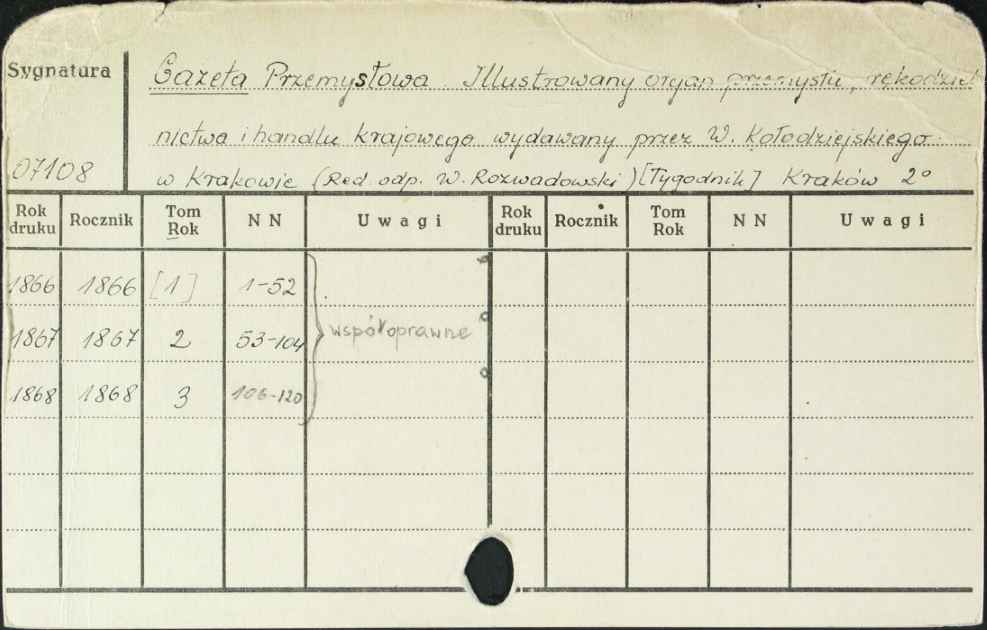 Sygnatura
Gazeta Przemysłowa. Illustrowany organ przemysłu, rękodziel
nictwa i handlu krajowego wydawany przez W. Kołodziejskiego
07108
w Krakowie (Red. odp. W. Rozwadowski) [Tygodnik] Kraków 2°
Rok druku Rocznik Tom Rok N N Uwagi Rok druku Rocznik Tom Rok N N Uwagi
1866 1866 [1] 1-52
1867 1867 2 53-104 współoprawne
1868 1868 3 106-120